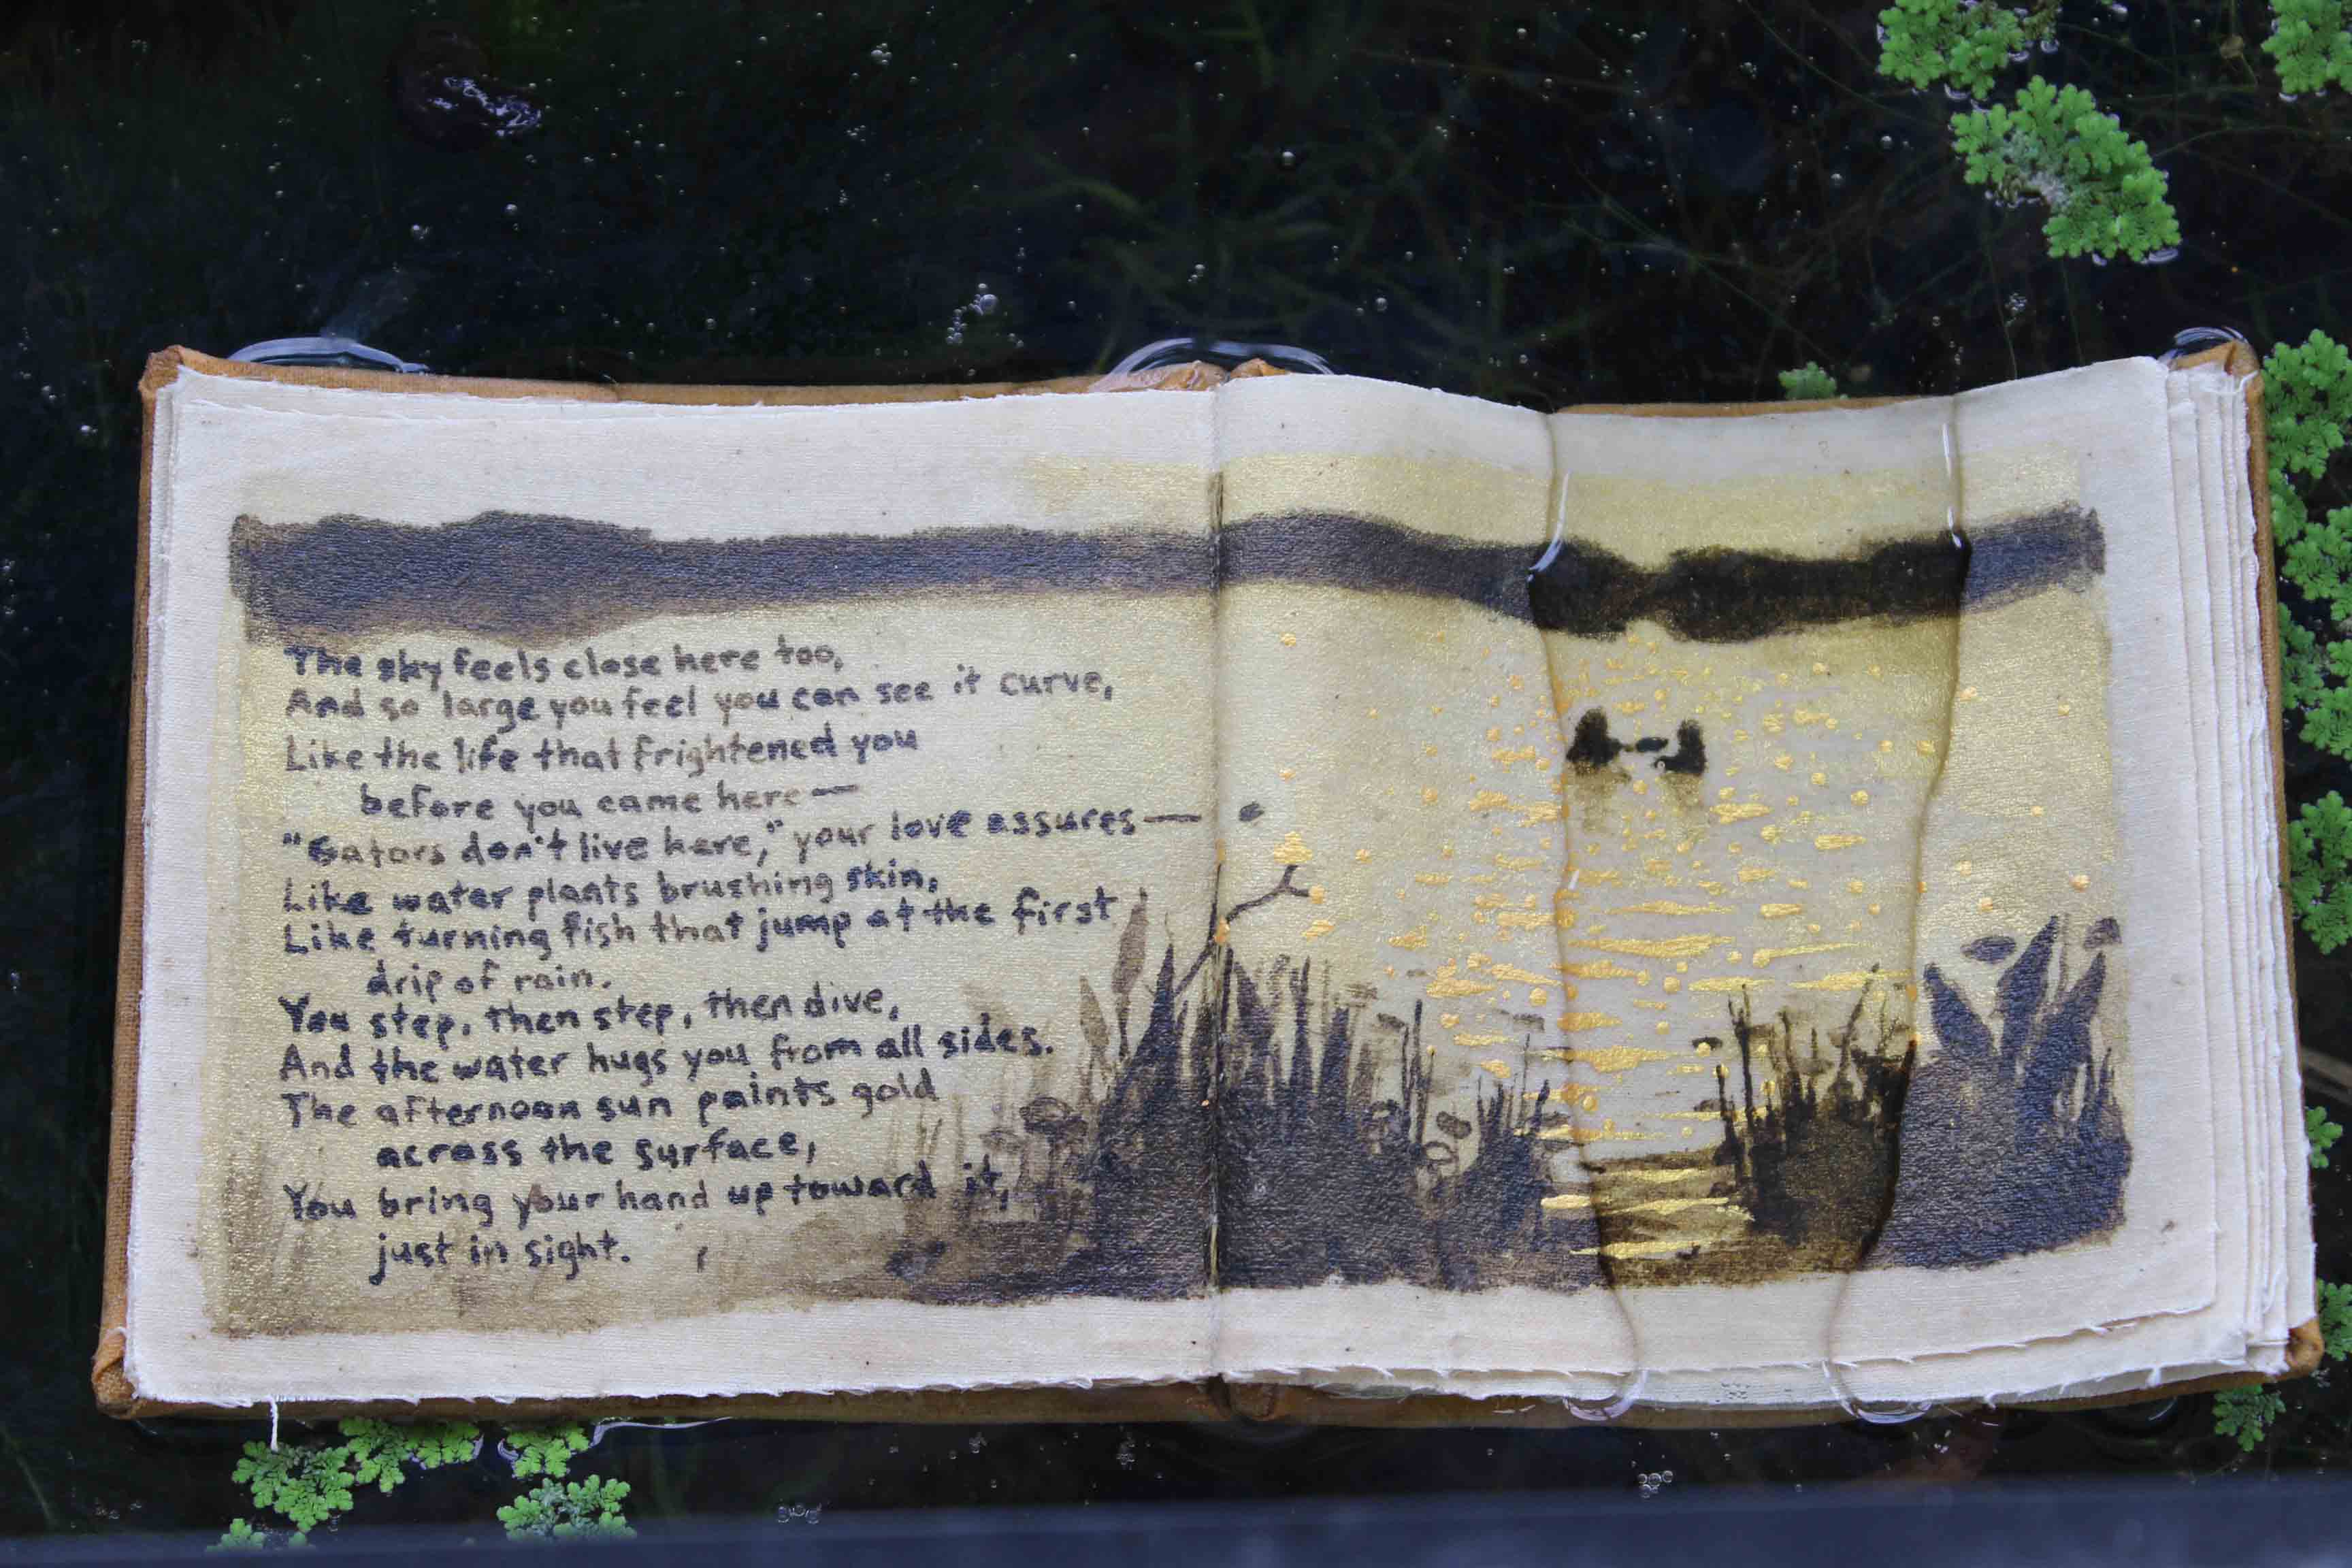 The sky feels close here too,
And so large you feel you can see it curve,
Like the life that frightened you
before you came here—
"Gators don't live here," your love assures—
Like water plants brushing skin,
Like turning fish that jump at the first
drip of rain.
You step, then step, then dive,
And the water hugs you from all sides.
The afternoon sun paints gold
across the surface,
You bring your hand up toward it,
just in sight.